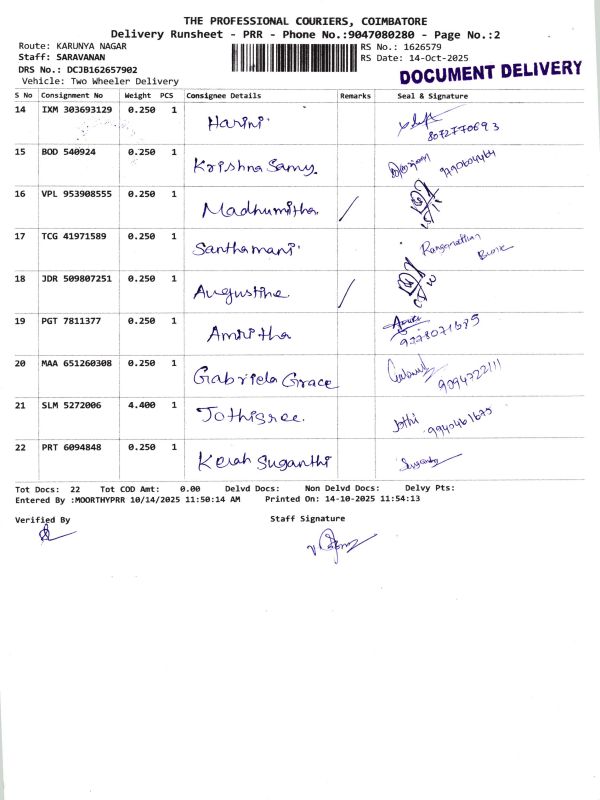 THE PROFESSIONAL COURIERS, COIMBATORE
Delivery Runsheet - PRR - Phone No.:9047080280 - Page No.:2
Route: KARUNYA NAGAR
RS No.: 1626579
Staff: SARAVANAN
RS Date: 14-Oct-2025
DRS No.: DCJB162657902
DOCUMENT DELIVERY
Vehicle: Two Wheeler Delivery
S No Consignment No Weight PCS Consignee Details Remarks Seal & Signature
14 IXM 303693129 0.250 1 Harini
8072770693
15 BOD 540924 0.250 1 Krishna Samy
16 VPL 953908555 0.250 1 Madhumitha /
17 TCG 41971589 0.250 1 Santhamani
18 JDR 509807251 0.250 1 Augustine /
19 PGT 7811377 0.250 1 Amritha
20 MAA 651260308 0.250 1 Gabriela Grace
21 SLM 5272006 4.400 1 Jothisree Jothi
22 PRT 6094848 0.250 1 Kerah Suganthi
Tot Docs: 22 Tot COD Amt: 0.00 Delvd Docs: Non Delvd Docs: Delvy Pts:
Entered By :MOORTHYPRR 10/14/2025 11:50:14 AM Printed On: 14-10-2025 11:54:13
Verified By Staff Signature